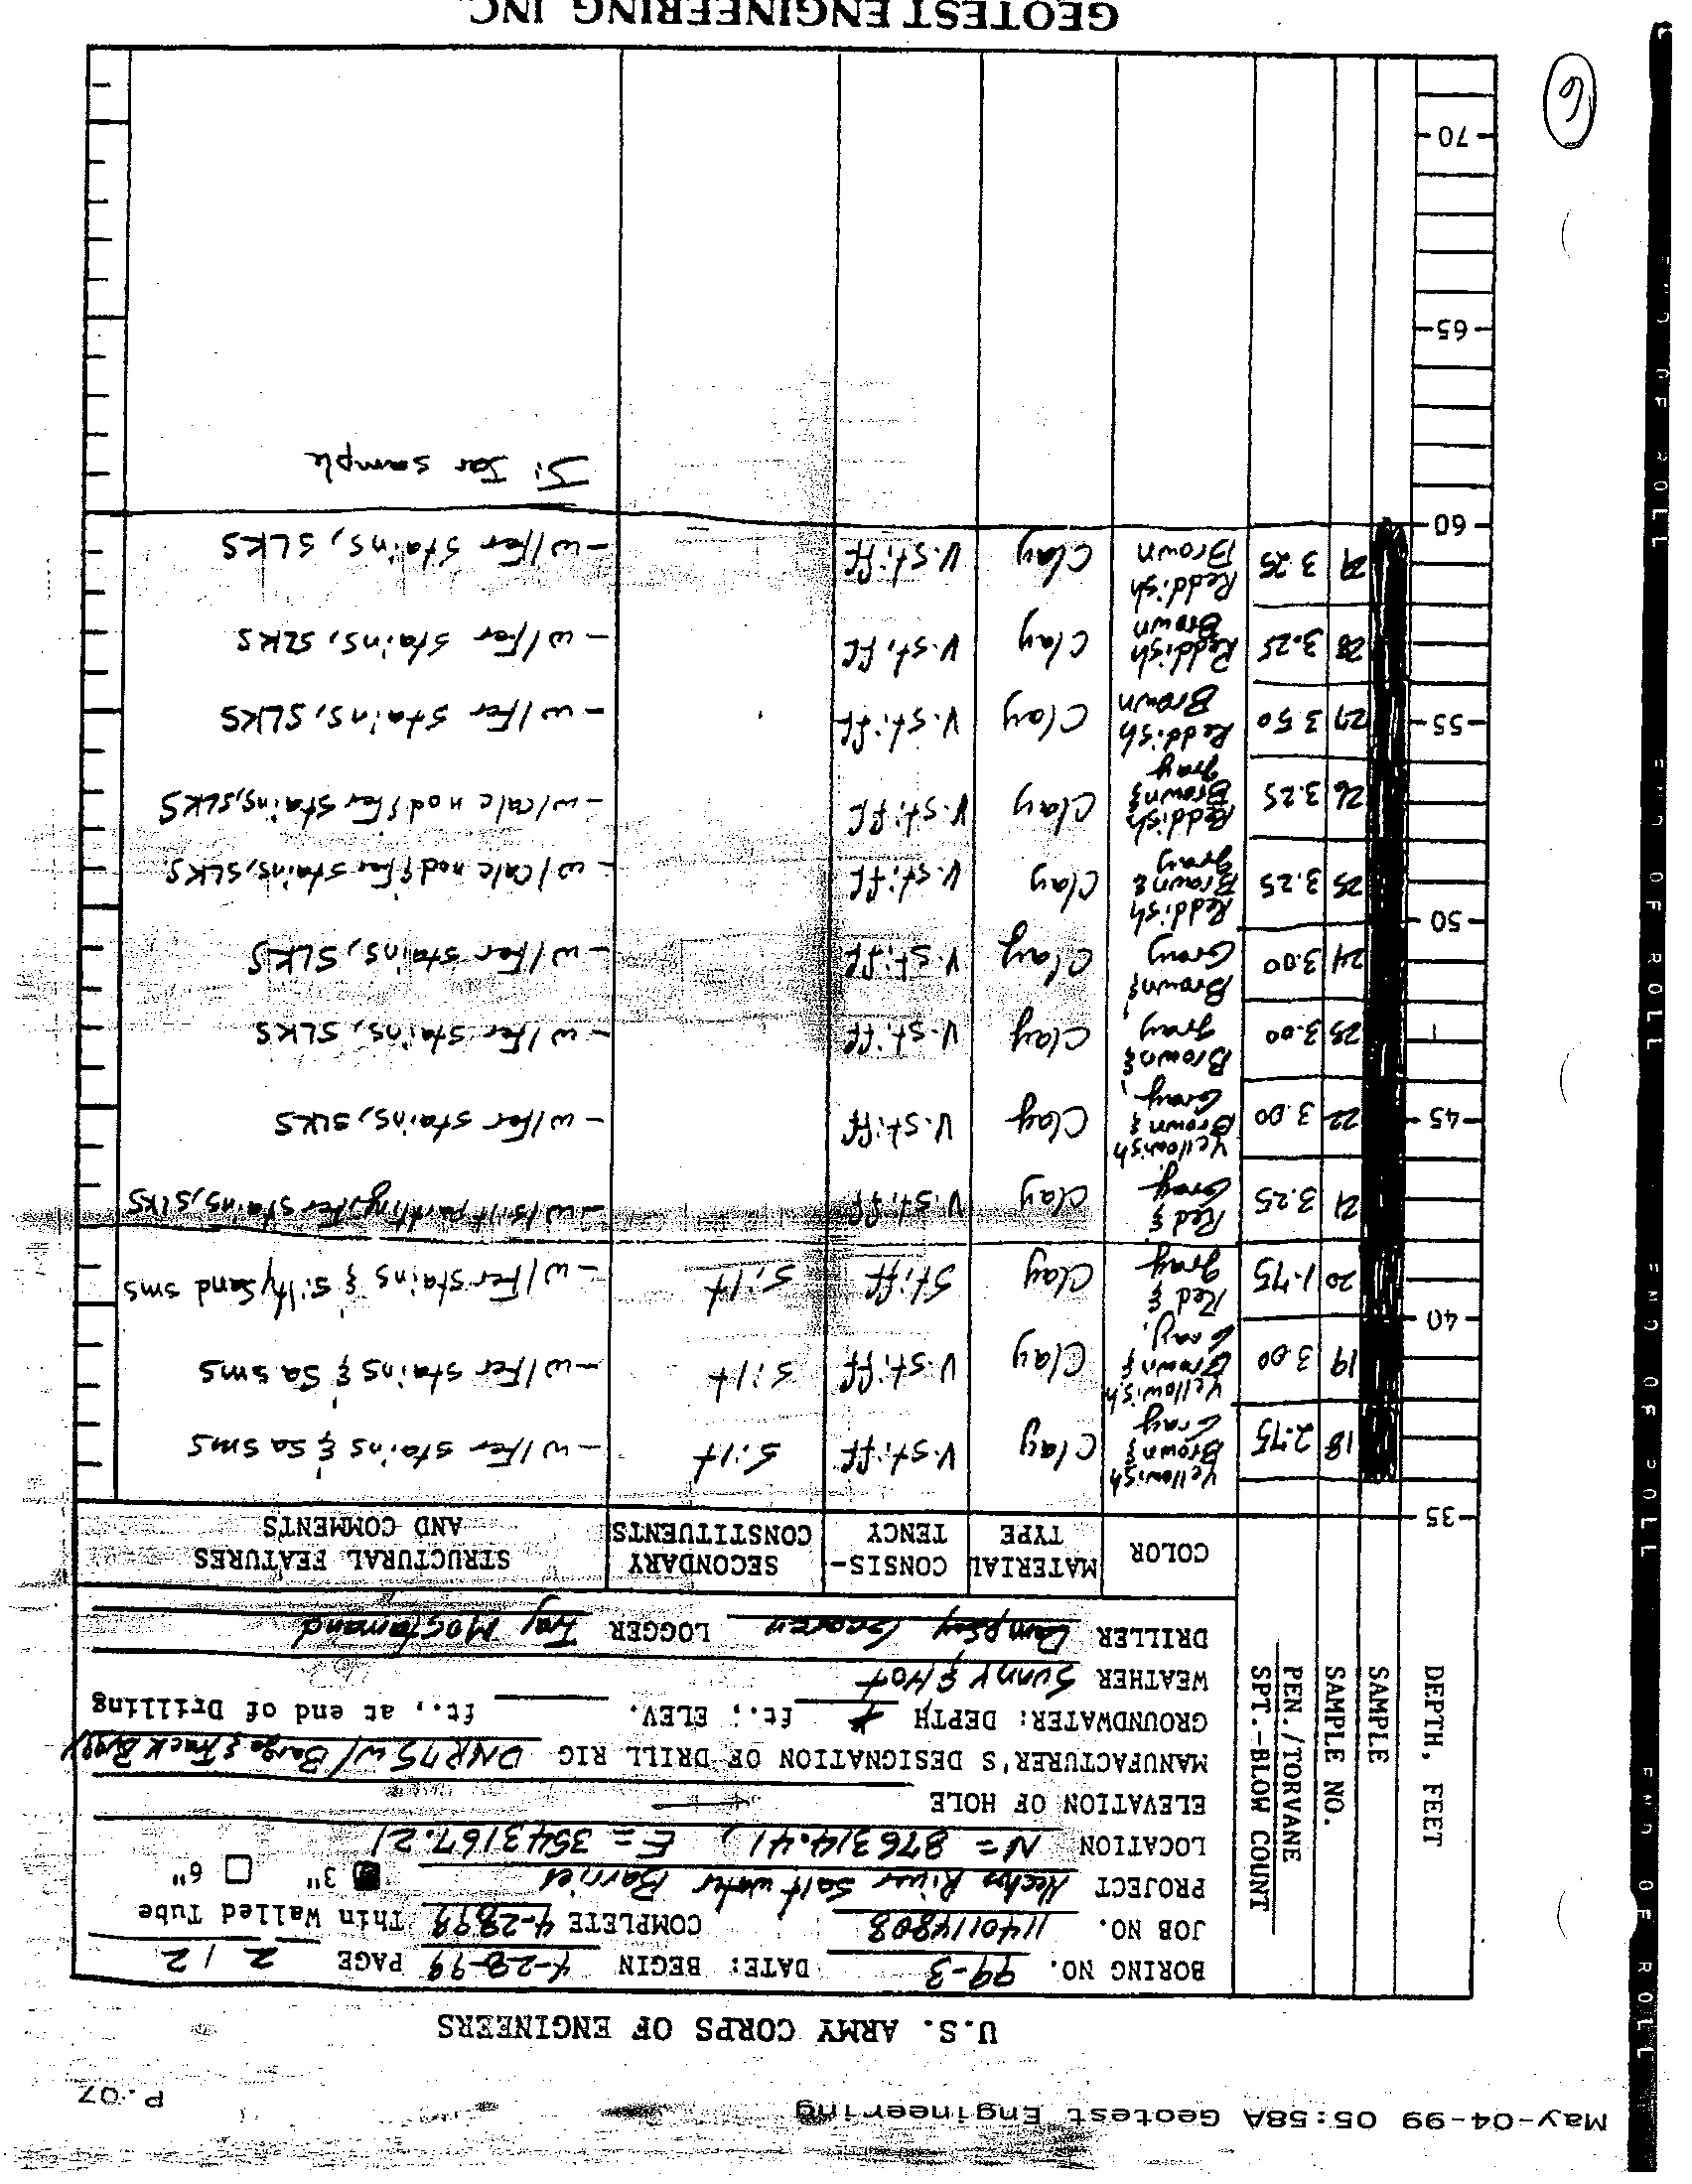 May-04-99 05:58A Geotest Engineering P.07
U.S. ARMY CORPS OF ENGINEERS
BORING NO. 99-3 DATE: BEGIN 4-28-99 PAGE 2 / 2
JOB NO. 1140114808 COMPLETE 4-28-99 Thin Walled Tube
PROJECT Neches River Saltwater Barrier 3" 6"
LOCATION N= 876314.41, E= 3543167.21
ELEVATION OF HOLE
MANUFACTURER'S DESIGNATION OF DRILL RIG DNR75 W/ Barge & Track Buggy
GROUNDWATER: DEPTH ft.; ELEV. ft., at end of Drilling
WEATHER Sunny & Hot
DRILLER LOGGER
DEPTH, FEET
SAMPLE
SAMPLE NO.
PEN./TORVANE
SPT.-BLOW COUNT
COLOR MATERIAL TYPE CONSIS-TENCY SECONDARY CONSTITUENTS STRUCTURAL FEATURES AND COMMENTS
35
18 2.75 Yellowish Brown & Gray Clay V.stiff Silt - w/fer stains & sa sms
19 3.00 Yellowish Brown & Gray Clay V.stiff Silt - w/fer stains & sa sms
40
20 1.75 Red & gray Clay Stiff Silt - w/fer stains & silty sand sms
21 3.25 Red & Gray Clay V.stiff - w/silt parting, fer stains, SLKS
45
22 3.00 Yellowish Brown & Gray Clay V.stiff - w/fer stains, SLKS
23 3.00 Brown & gray Clay V.stiff - w/fer stains, SLKS
24 3.00 Brown & Gray Clay V.stiff - w/fer stains, SLKS
50
25 3.25 Reddish Brown & gray Clay V.stiff - w/calc nod & fer stains, SLKS
26 3.25 Reddish Brown & gray Clay V.stiff - w/calc nod & fer stains, SLKS
55
27 3.50 Reddish Brown Clay V.stiff - w/fer stains, SLKS
28 3.25 Reddish Brown Clay V.stiff - w/fer stains, SLKS
29 3.25 Reddish Brown Clay V.stiff - w/fer stains, SLKS
60
J: Jar sample
65
70
6
GEOTEST ENGINEERING INC.
END OF ROLL END OF ROLL END OF ROLL END OF ROLL END OF ROLL